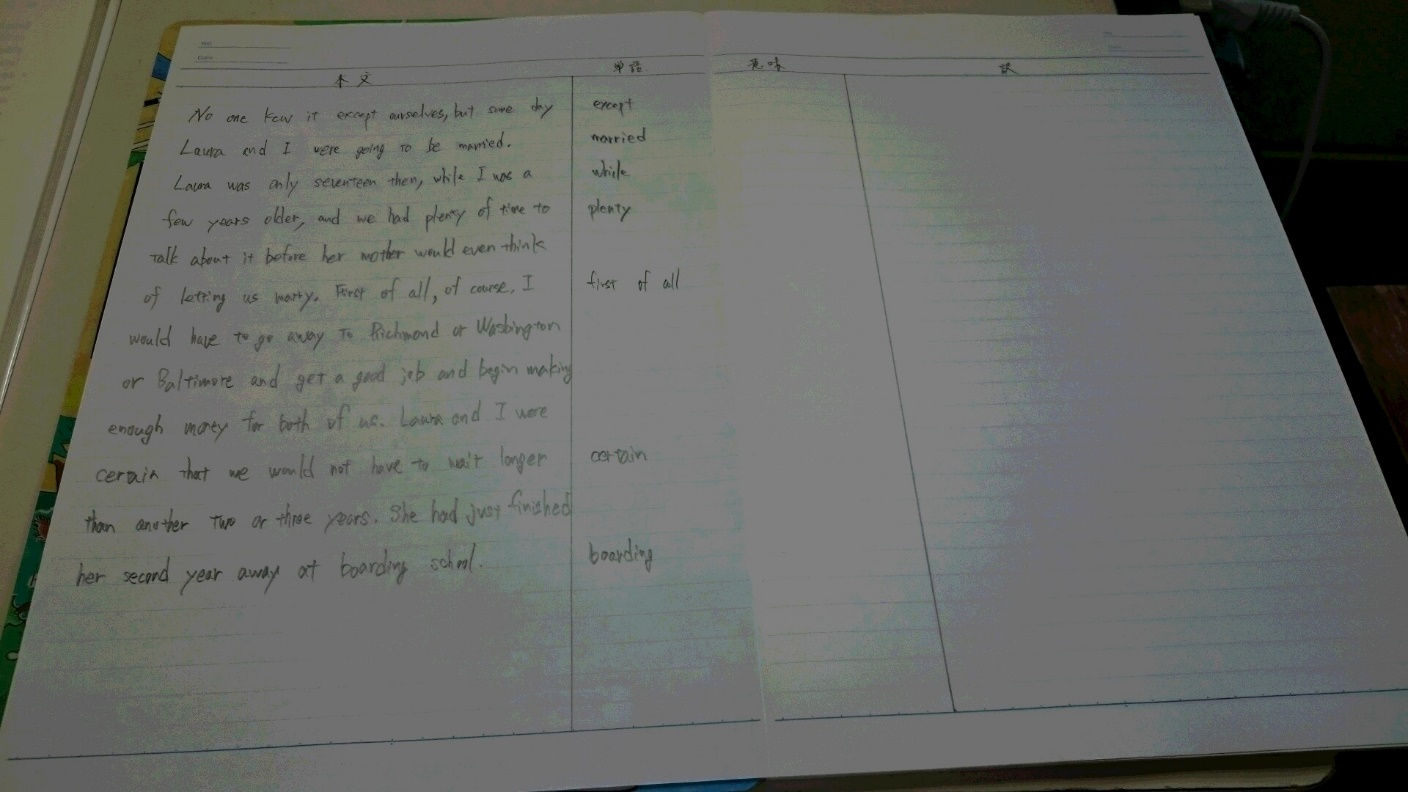 本文 単語 意味 訳
No one kew it except ourselves, but some day except
Laura and I were going to be married. married
Laura was only seventeen then, while I was a while
few years older, and we had plenty of time to plenty
talk about it before her mother would even think
of letting us marry. First of all, of course, I first of all
would have to go away to Richmond or Washington
or Baltimore and get a good job and begin making
enough money for both of us. Laura and I were
certain that we would not have to wait longer certain
than another two or three years. She had just finished
her second year away at boarding school. boarding